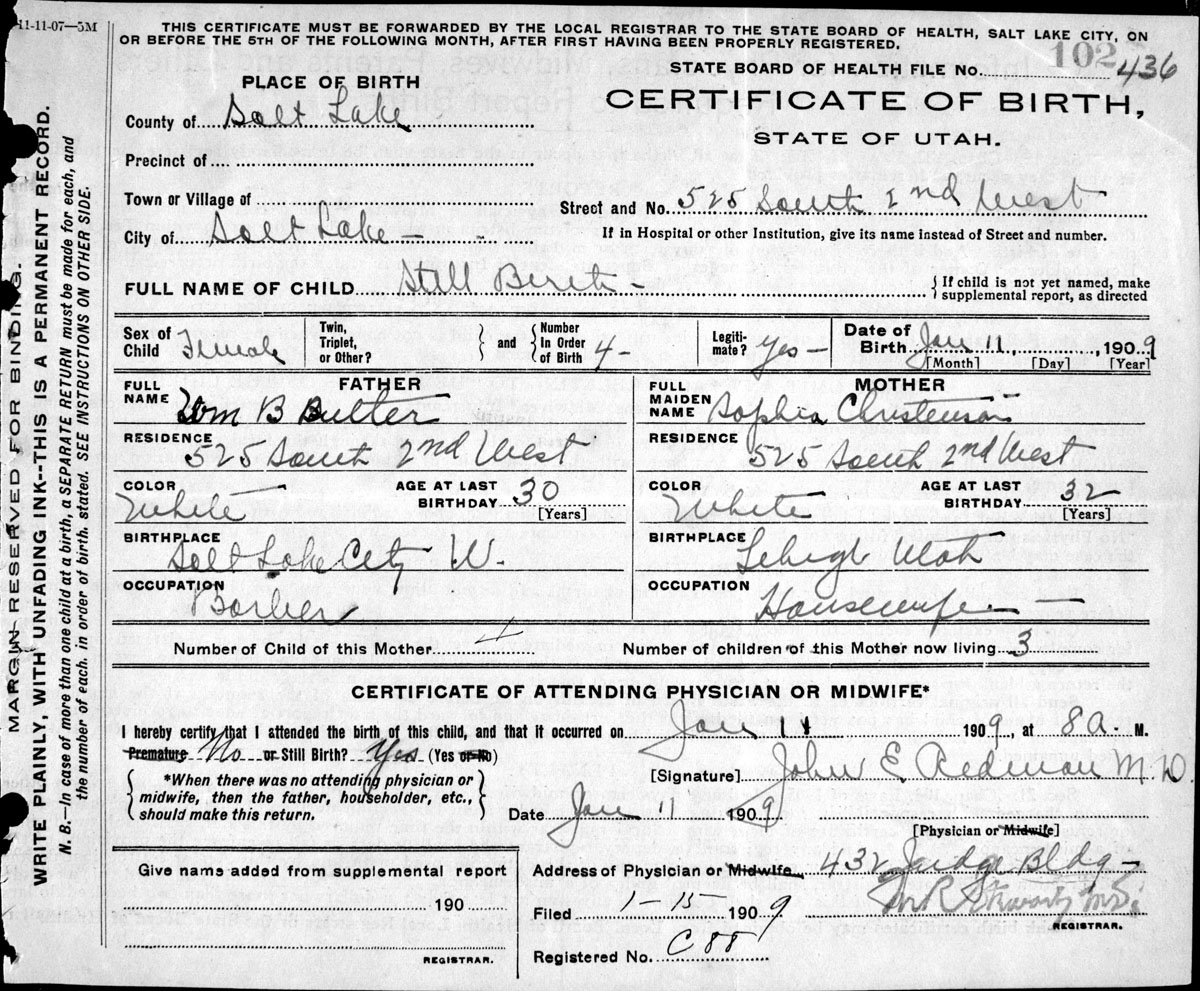 11-11-07—5M
THIS CERTIFICATE MUST BE FORWARDED BY THE LOCAL REGISTRAR TO THE STATE BOARD OF HEALTH, SALT LAKE CITY, ON
OR BEFORE THE 5TH OF THE FOLLOWING MONTH, AFTER FIRST HAVING BEEN PROPERLY REGISTERED.
STATE BOARD OF HEALTH FILE No. 102 436
PLACE OF BIRTH
CERTIFICATE OF BIRTH,
STATE OF UTAH.
County of Salt Lake
Precinct of
Town or Village of
Street and No. 525 South 2nd West
City of Salt Lake
If in Hospital or other Institution, give its name instead of Street and number.
FULL NAME OF CHILD Still Birth -
If child is not yet named, make
supplemental report, as directed
Sex of Child Female
Twin, Triplet, or Other?
and Number In Order of Birth 4-
Legitimate? Yes-
Date of Birth Jan 11, 1909
[Month] [Day] [Year]
FATHER
FULL NAME Wm B Butter
MOTHER
FULL MAIDEN NAME Sophia Christenson
RESIDENCE 525 South 2nd West
RESIDENCE 525 South 2nd West
COLOR White
AGE AT LAST BIRTHDAY 30 [Years]
COLOR White
AGE AT LAST BIRTHDAY 32 [Years]
BIRTHPLACE Salt Lake City U.
BIRTHPLACE Lehigh Utah
OCCUPATION Barber
OCCUPATION Housewife
Number of Child of this Mother 4
Number of children of this Mother now living 3
CERTIFICATE OF ATTENDING PHYSICIAN OR MIDWIFE*
I hereby certify that I attended the birth of this child, and that it occurred on Jan 11 1909, at 8 a. M.
Premature No or Still Birth? Yes (Yes or No)
*When there was no attending physician or
midwife, then the father, householder, etc.,
should make this return.
[Signature] John E. Redman M D
Date Jan 11 1909
[Physician or Midwife]
Give name added from supplemental report
190
REGISTRAR.
Address of Physician or Midwife 432 Judge Bldg-
Filed 1-15- 1909
REGISTRAR.
Registered No. C88
MARGIN RESERVED FOR BINDING.
WRITE PLAINLY, WITH UNFADING INK--THIS IS A PERMANENT RECORD.
N. B.—In case of more than one child at a birth, a SEPARATE RETURN must be made for each, and
the number of each, in order of birth, stated. SEE INSTRUCTIONS ON OTHER SIDE.